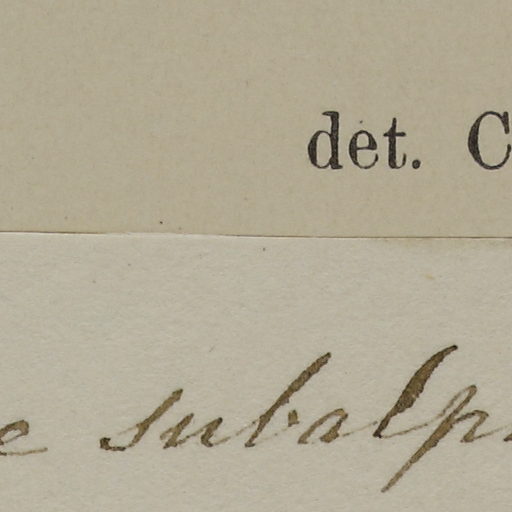 det. C
e subalp